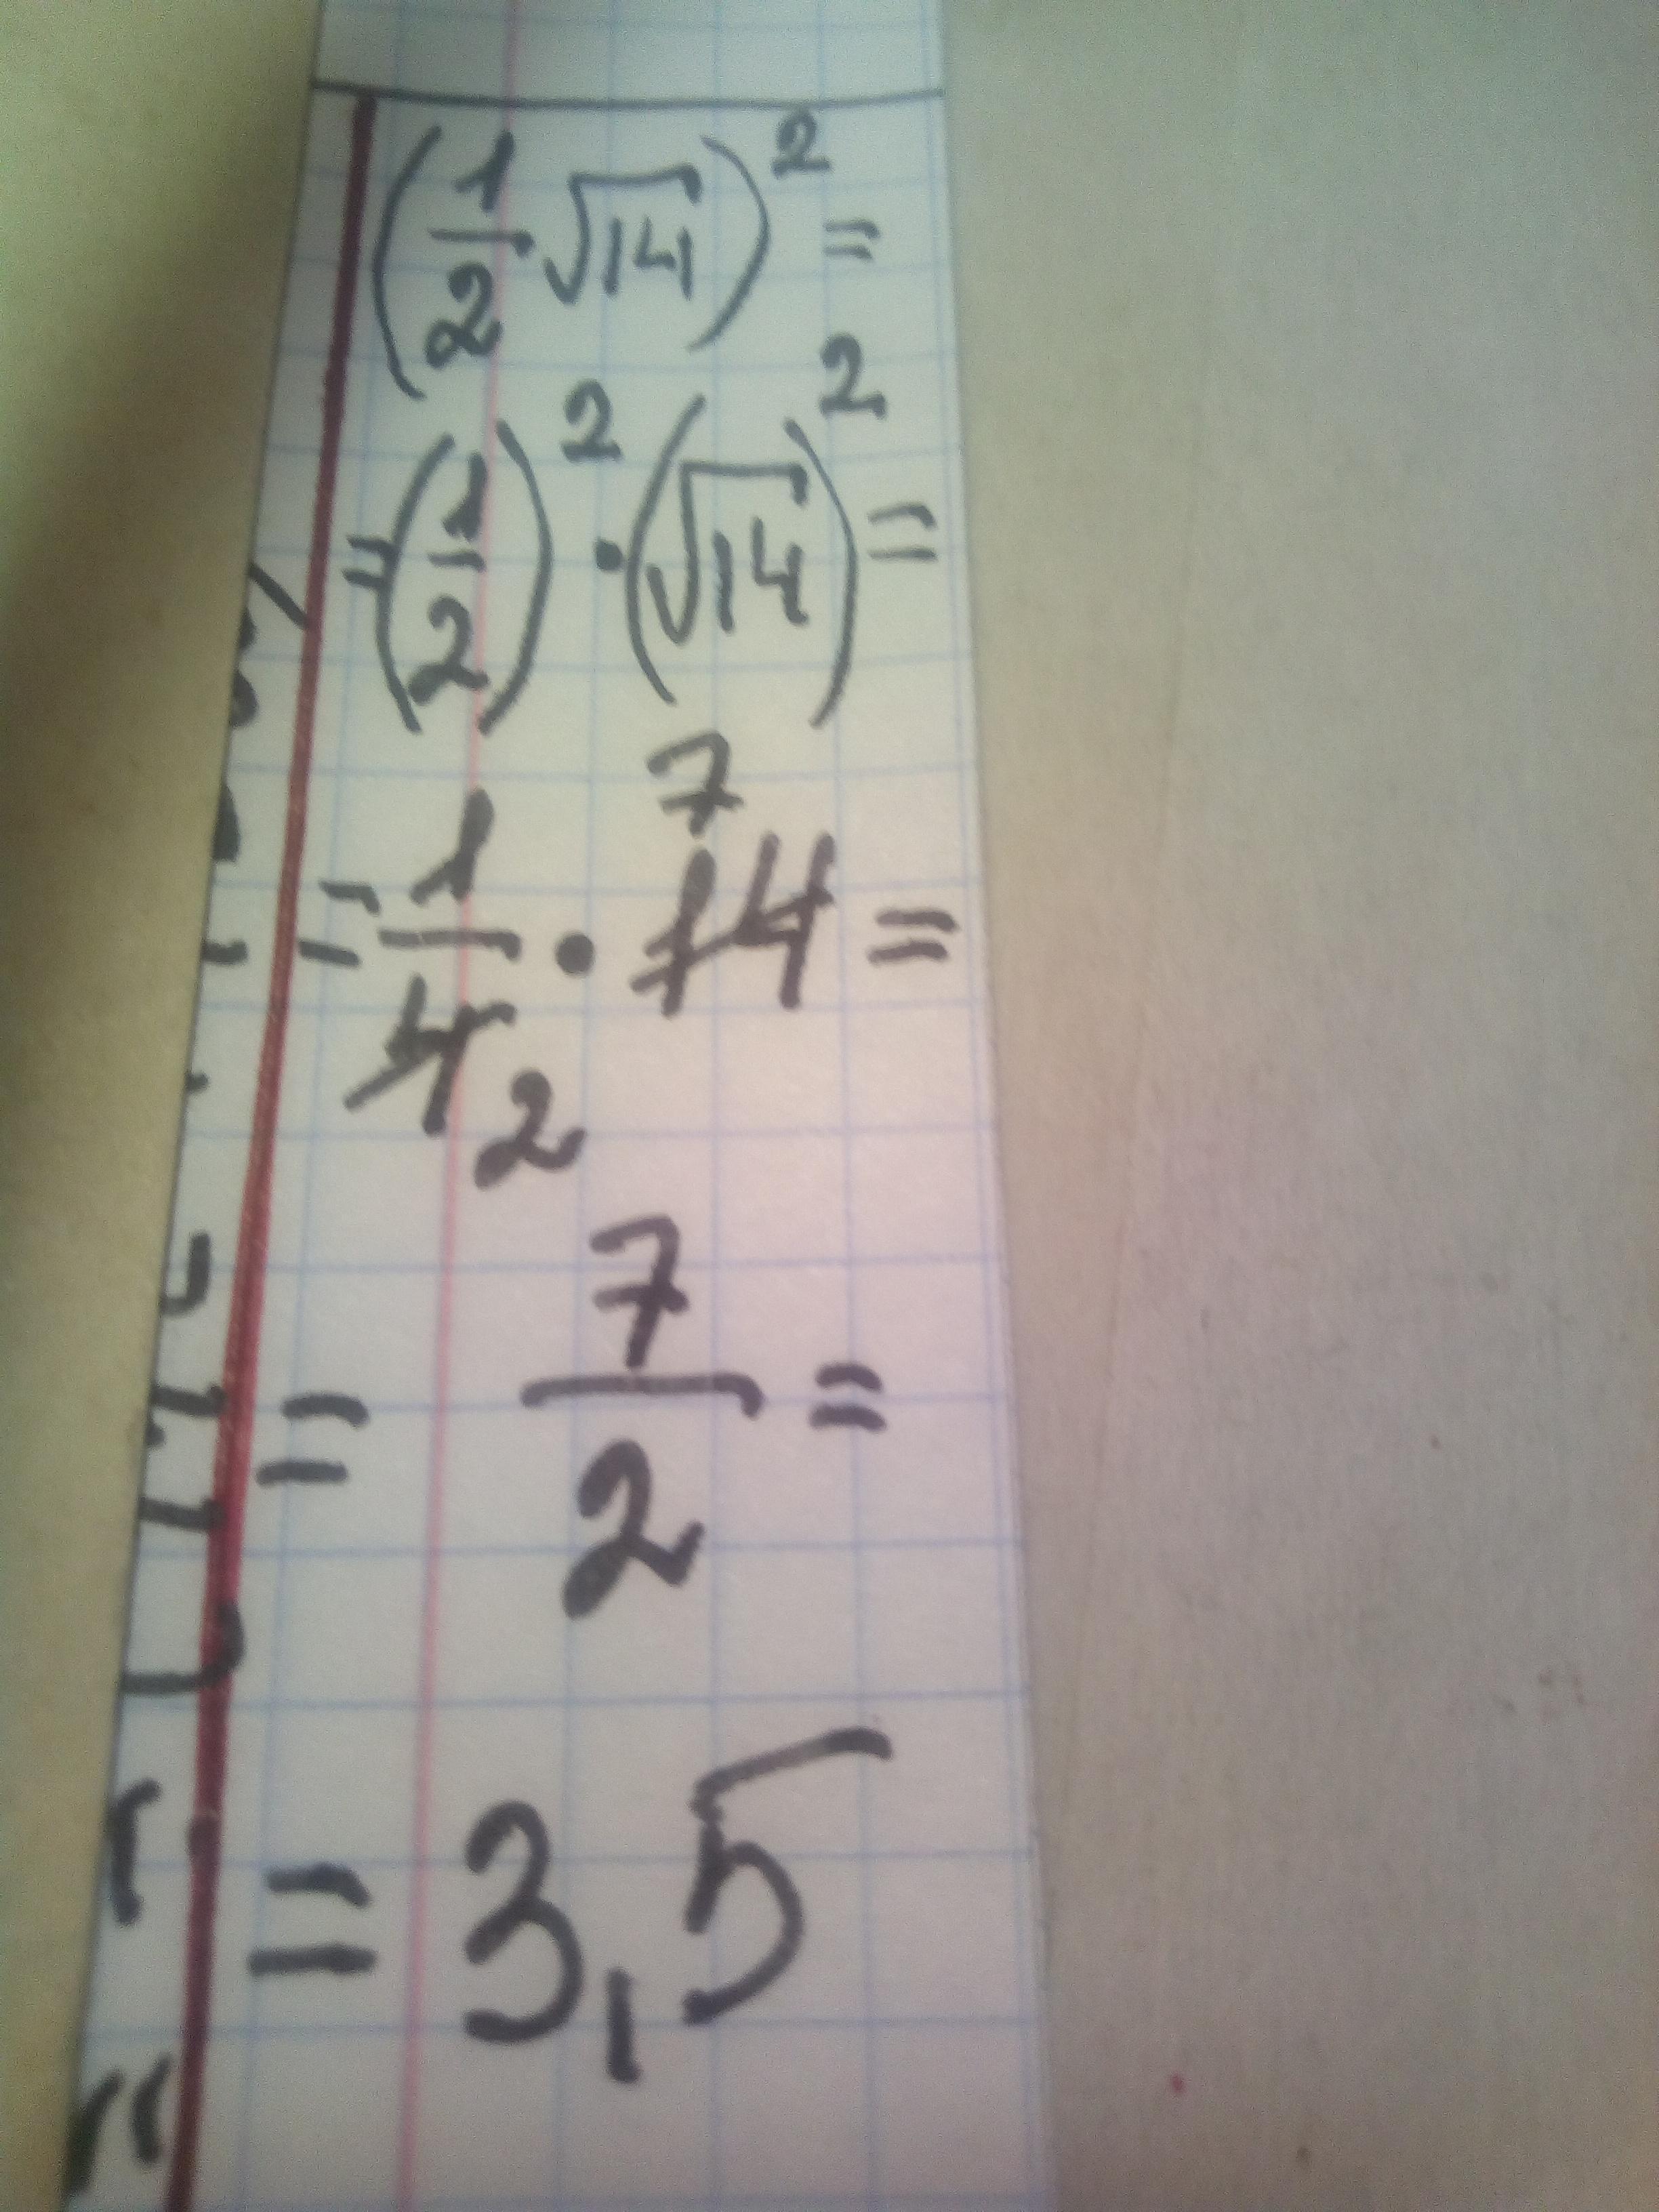 (1/2 √14)² =
= (1/2)² · (√14)² =
= 1/4 2 · 14 7 =
= 7/2 =
= 3,5